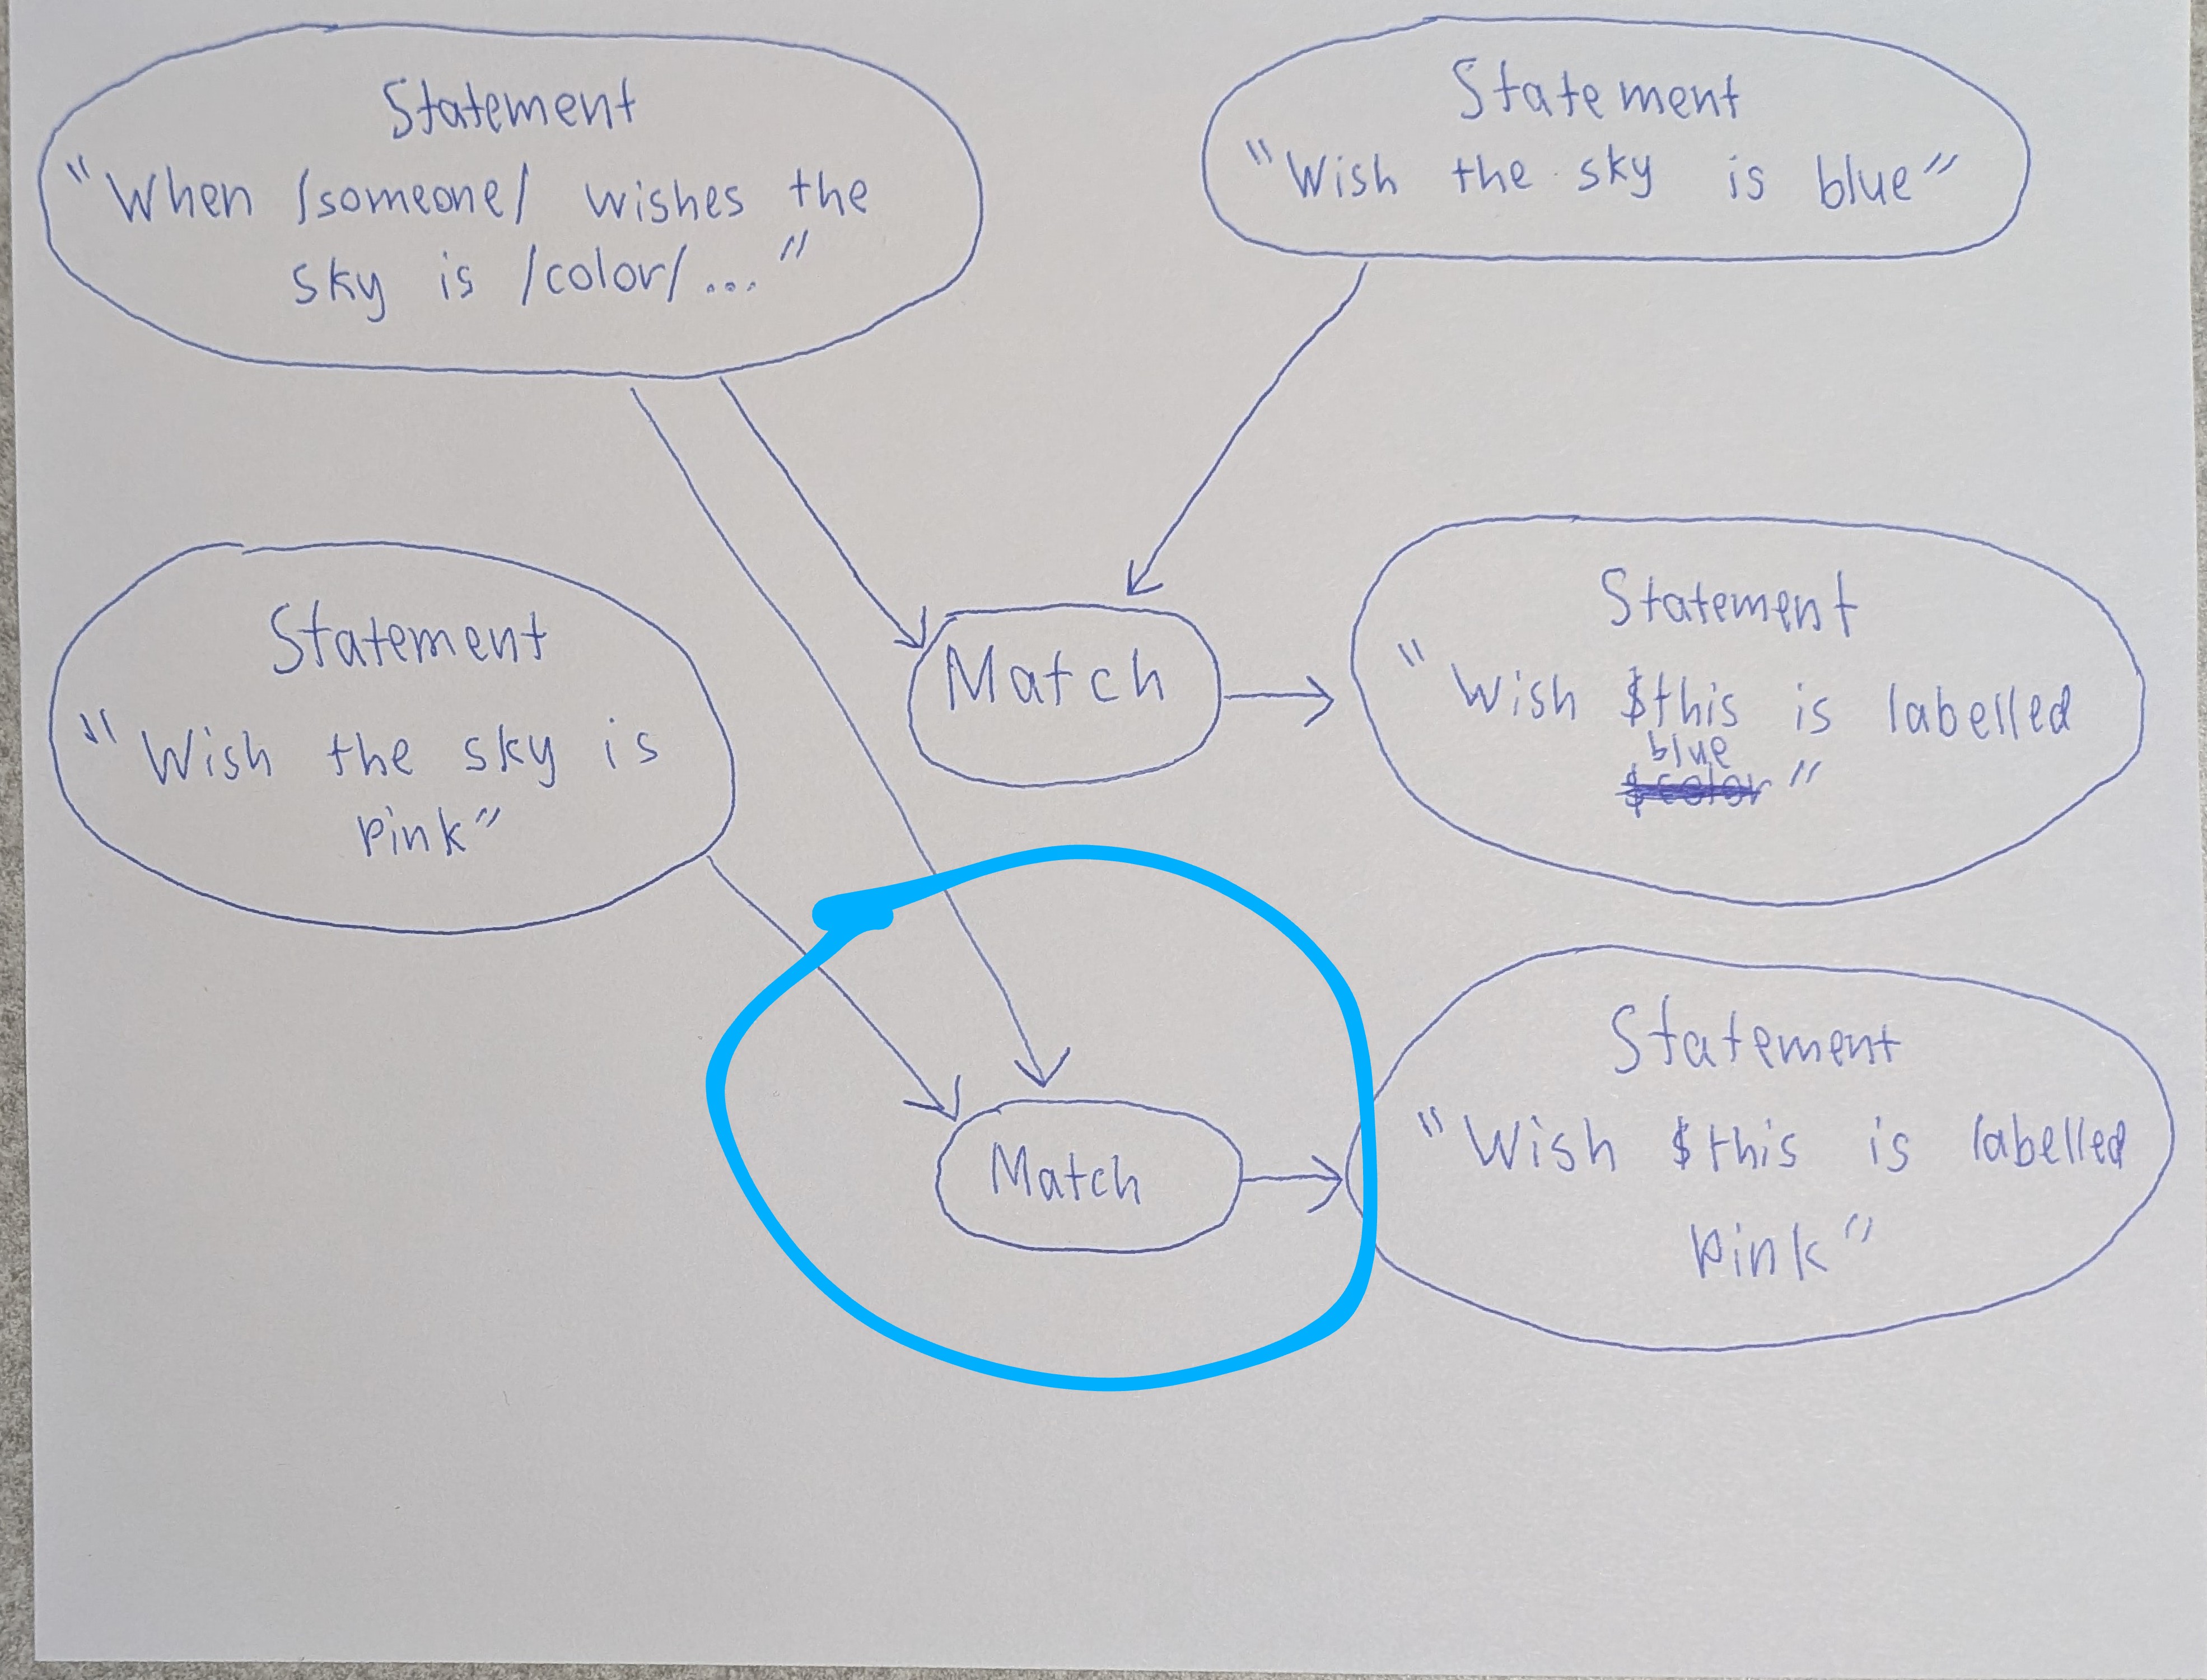 Statement
"When /someone/ wishes the
sky is /color/..."
Statement
"Wish the sky is blue"
Statement
"Wish the sky is
pink"
Match
Statement
"Wish $this is labelled
blue
$color"
Match
Statement
"Wish $this is labelled
pink"